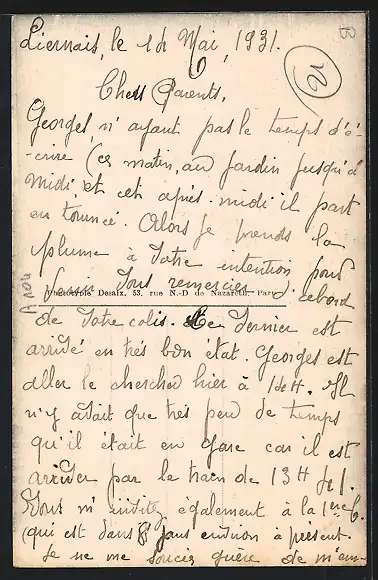 Liernais, le 14 Mai, 1931.
B
Chers Parents,
Georges n'ayant pas le temps d'é-
-crire (ce matin, au jardin jusqu'à
midi et cet après-midi il part
en tournée. Alors je prends la
plume à Votre intention pour
Vous remercier d'abord
Phototypie Desaix, 53, rue N.-D de Nazareth. Paris
de Votre colis. Ce dernier est
arrivé en très bon état. Georges est
aller le chercher hier à 14H. Il
n'y avait que très peu de temps
qu'il était en gare car il est
arrivé par le train de 13H
Vous m'invitez également à la 1ère C.
(qui est dans 8 jours environ à présent.
Je ne me soucis guère de m'em-